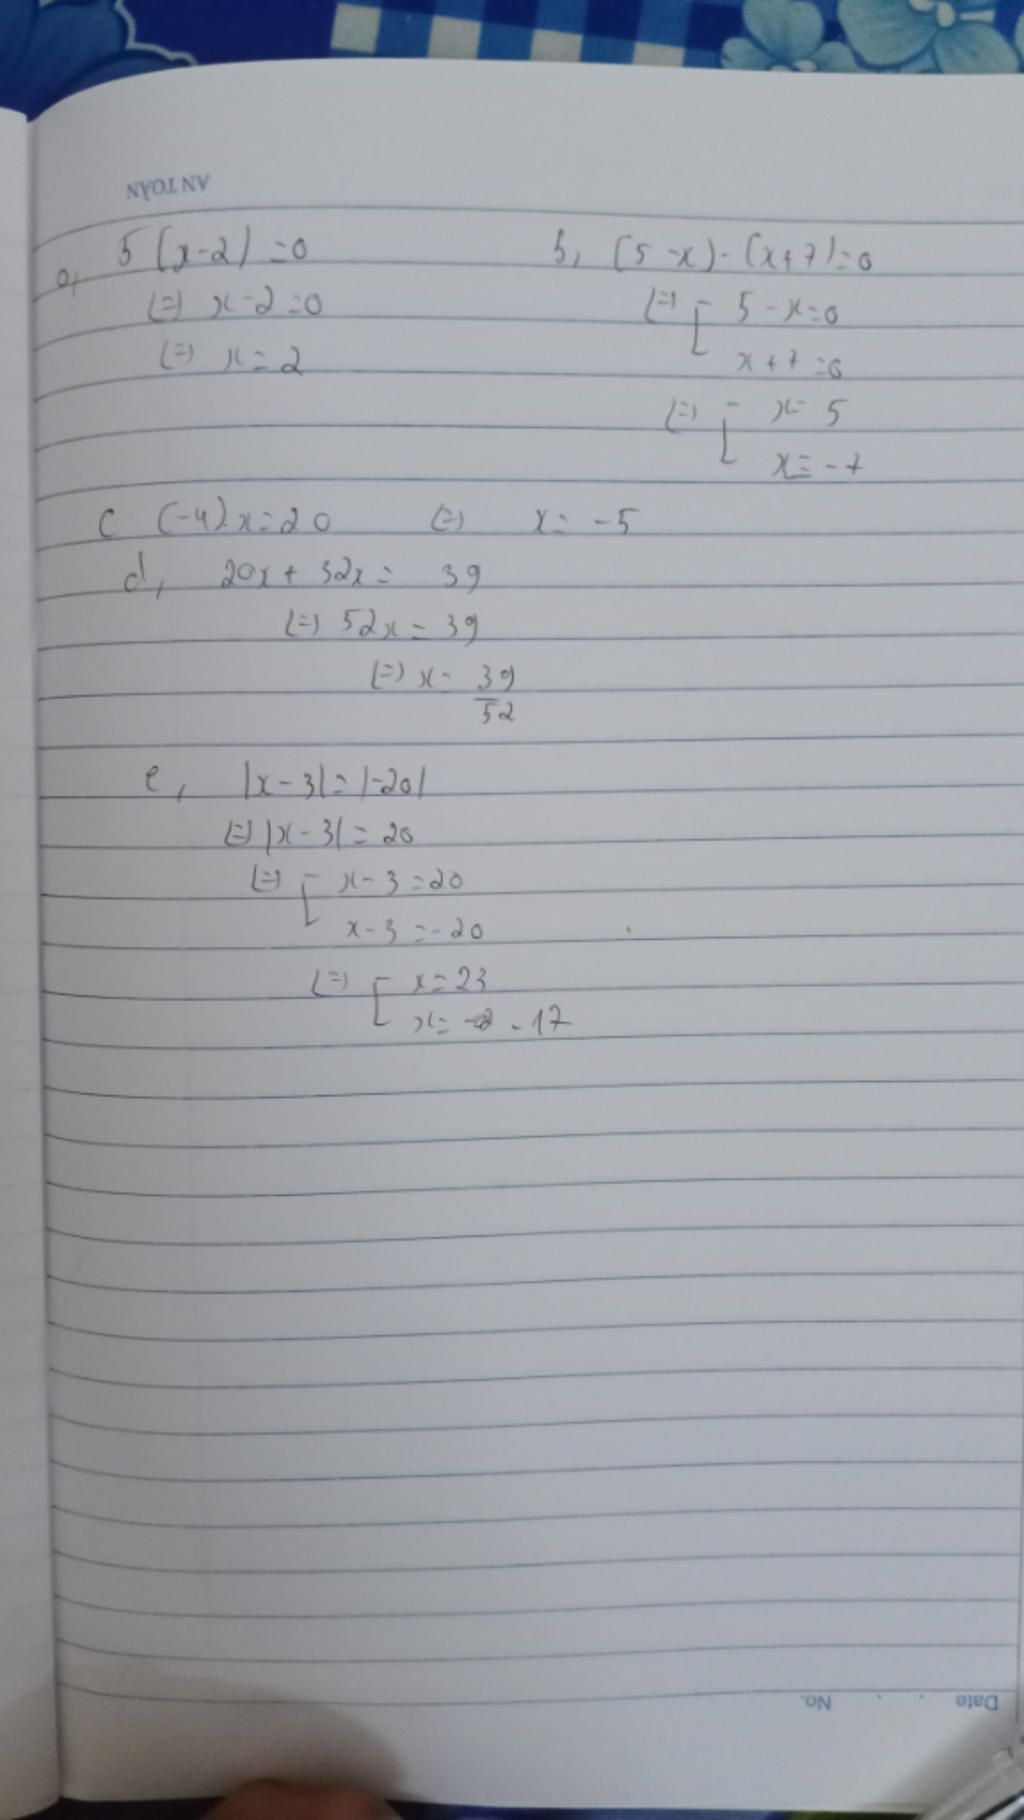 AN TOÀN
a, 5 (x-2) = 0
(=) x-2=0
(=) x = 2
b, (5-x)-(x+7)=0
(=) [ 5-x=0
x+7=0
(=) [ x= 5
x= -7
c (-4).x=20 (=) x= -5
d, 20x + 32x = 39
(=) 52x = 39
(=) x = 39
52
e, |x-3|=|-20|
(=) |x-3| = 20
(=) [ x-3=20
x-3=-20
(=) [ x=23
x= -17
Date . . No.